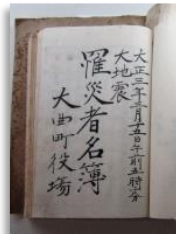 大正三年三月十五日午前五時
大地震
罹災者名簿
大曲町役場